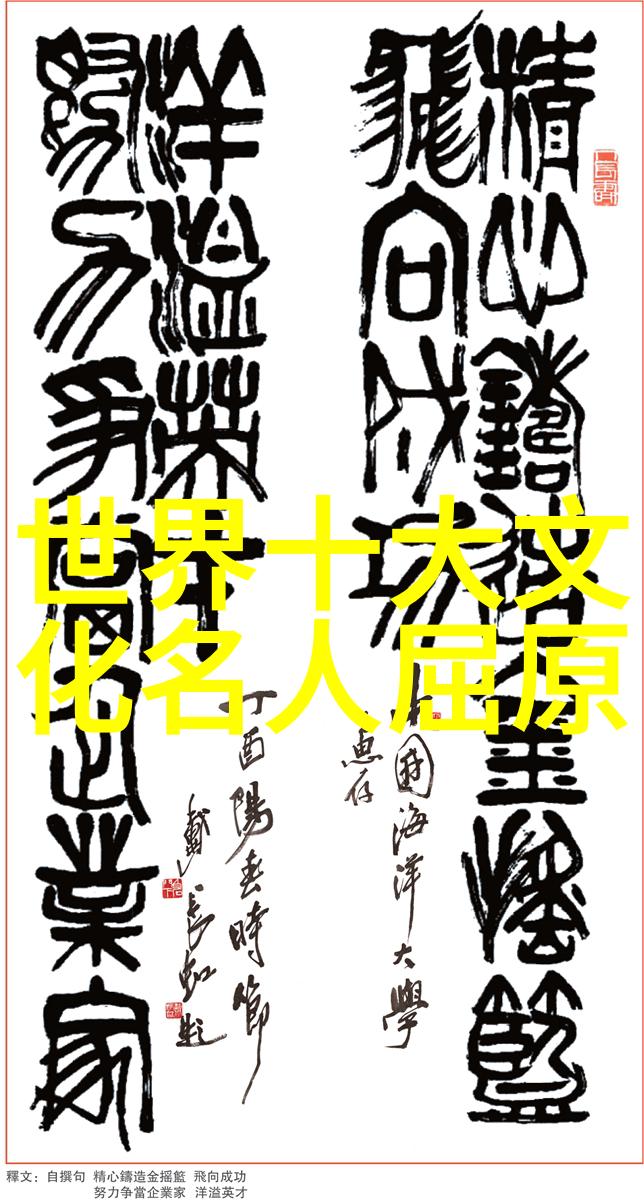 精心鑄造金搖籃
飛向成功
中國海洋大學
惠存
努力爭當企業家
洋溢英才
丁酉陽春時節
戴長虹題
世界十大文
化名人屈原
釋文：自撰句 精心鑄造金摇籃 飛向成功
努力争當企業家 洋溢英才